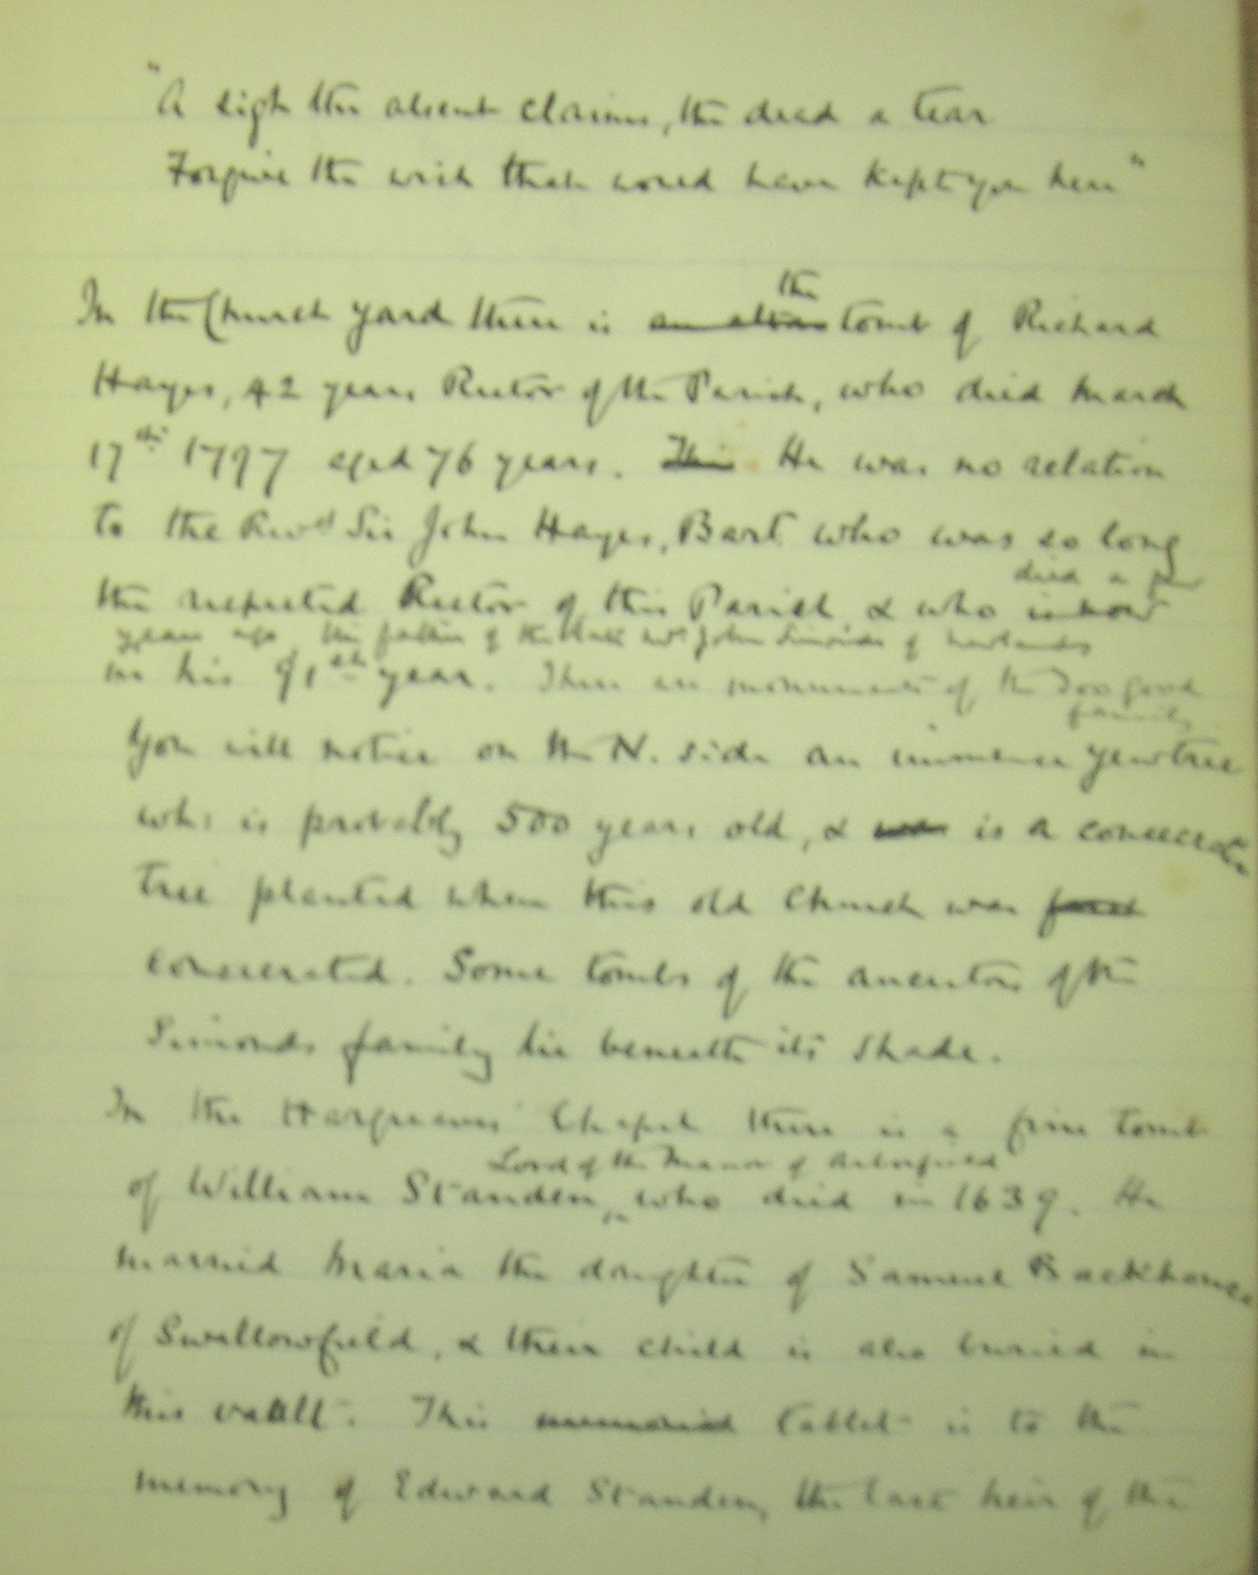 "A sigh the absent claims, the dead a tear
Forgive the wish that would have kept you here"
the
In the Church yard there is an altar tomb of Richard
Hayes, 42 years Rector of the Parish, who died March
17th 1797 aged 76 years. This He was no relation
to the Revd Sir John Hayes, Bart. who was so long
died a few
the respected Rector of this Parish & who is now
years ago, the father of the late Mr John Simonds of Newlands
in his 91st year. There are monuments of the Dougood
family
You will notice on the N. side an immense yew tree
wh: is probably 500 years old, & was is a consecrate
tree planted when this old Church was first
consecrated. Some tombs of the ancestors of the
Simonds family lie beneath its shade.
In the Hargreaves' Chapel there is a fine tomb
Lord of the Manor of Arborfield
of William Standen, who died in 1639. He
married Maria the daughter of Samuel Backhouse
of Swallowfield, & their child is also buried in
this vault. This memorial tablet is to the
memory of Edward Standen, the last heir of the